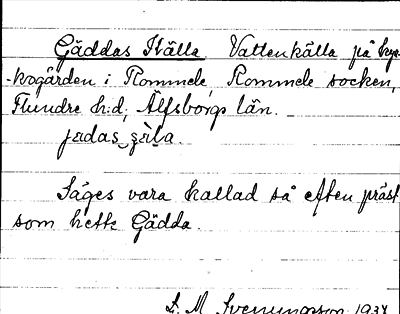 Gäddas Källa Vattenkälla på kyr-
kogården i Rommele, Rommele socken,
Flundre h:d, Älfsborgs län.
Säges vara kallad så efter präst
som hette Gädda.
S. M. Svenungsson 1934